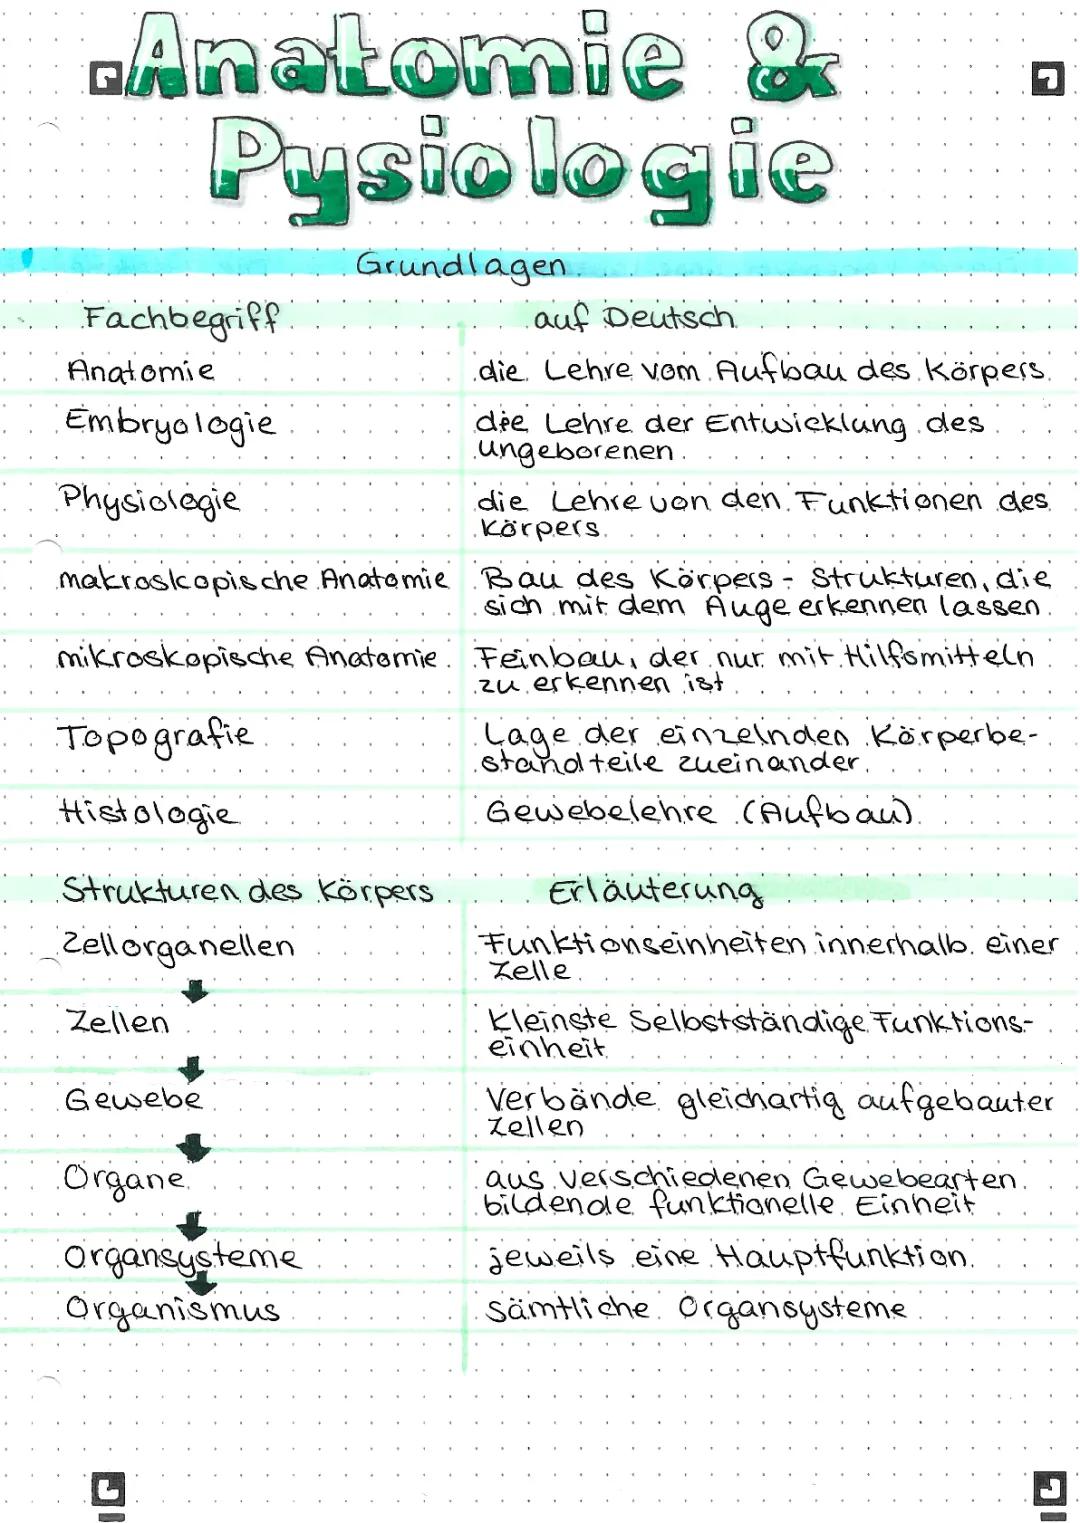 Anatomie &
Pysiologie
Grundlagen
Fachbegriff auf Deutsch
Anatomie die Lehre vom Aufbau des Körpers
Embryologie die Lehre der Entwicklung des
ungeborenen
Physiologie die Lehre von den Funktionen des
Körpers
makroskopische Anatomie Bau des Körpers - Strukturen, die
sich mit dem Auge erkennen lassen
mikroskopische Anatomie Feinbau, der nur mit Hilfsmitteln
zu erkennen ist
Topografie Lage der einzelnden Körperbe-
standteile zueinander
Histologie Gewebelehre (Aufbau)
Strukturen des Körpers Erläuterung
Zellorganellen Funktionseinheiten innerhalb einer
Zelle
Zellen kleinste Selbstständige Funktions-
einheit
Gewebe Verbände gleichartig aufgebauter
Zellen
Organe aus verschiedenen Gewebearten
bildende funktionelle Einheit
Organsysteme jeweils eine Hauptfunktion
Organismus sämtliche Organsysteme